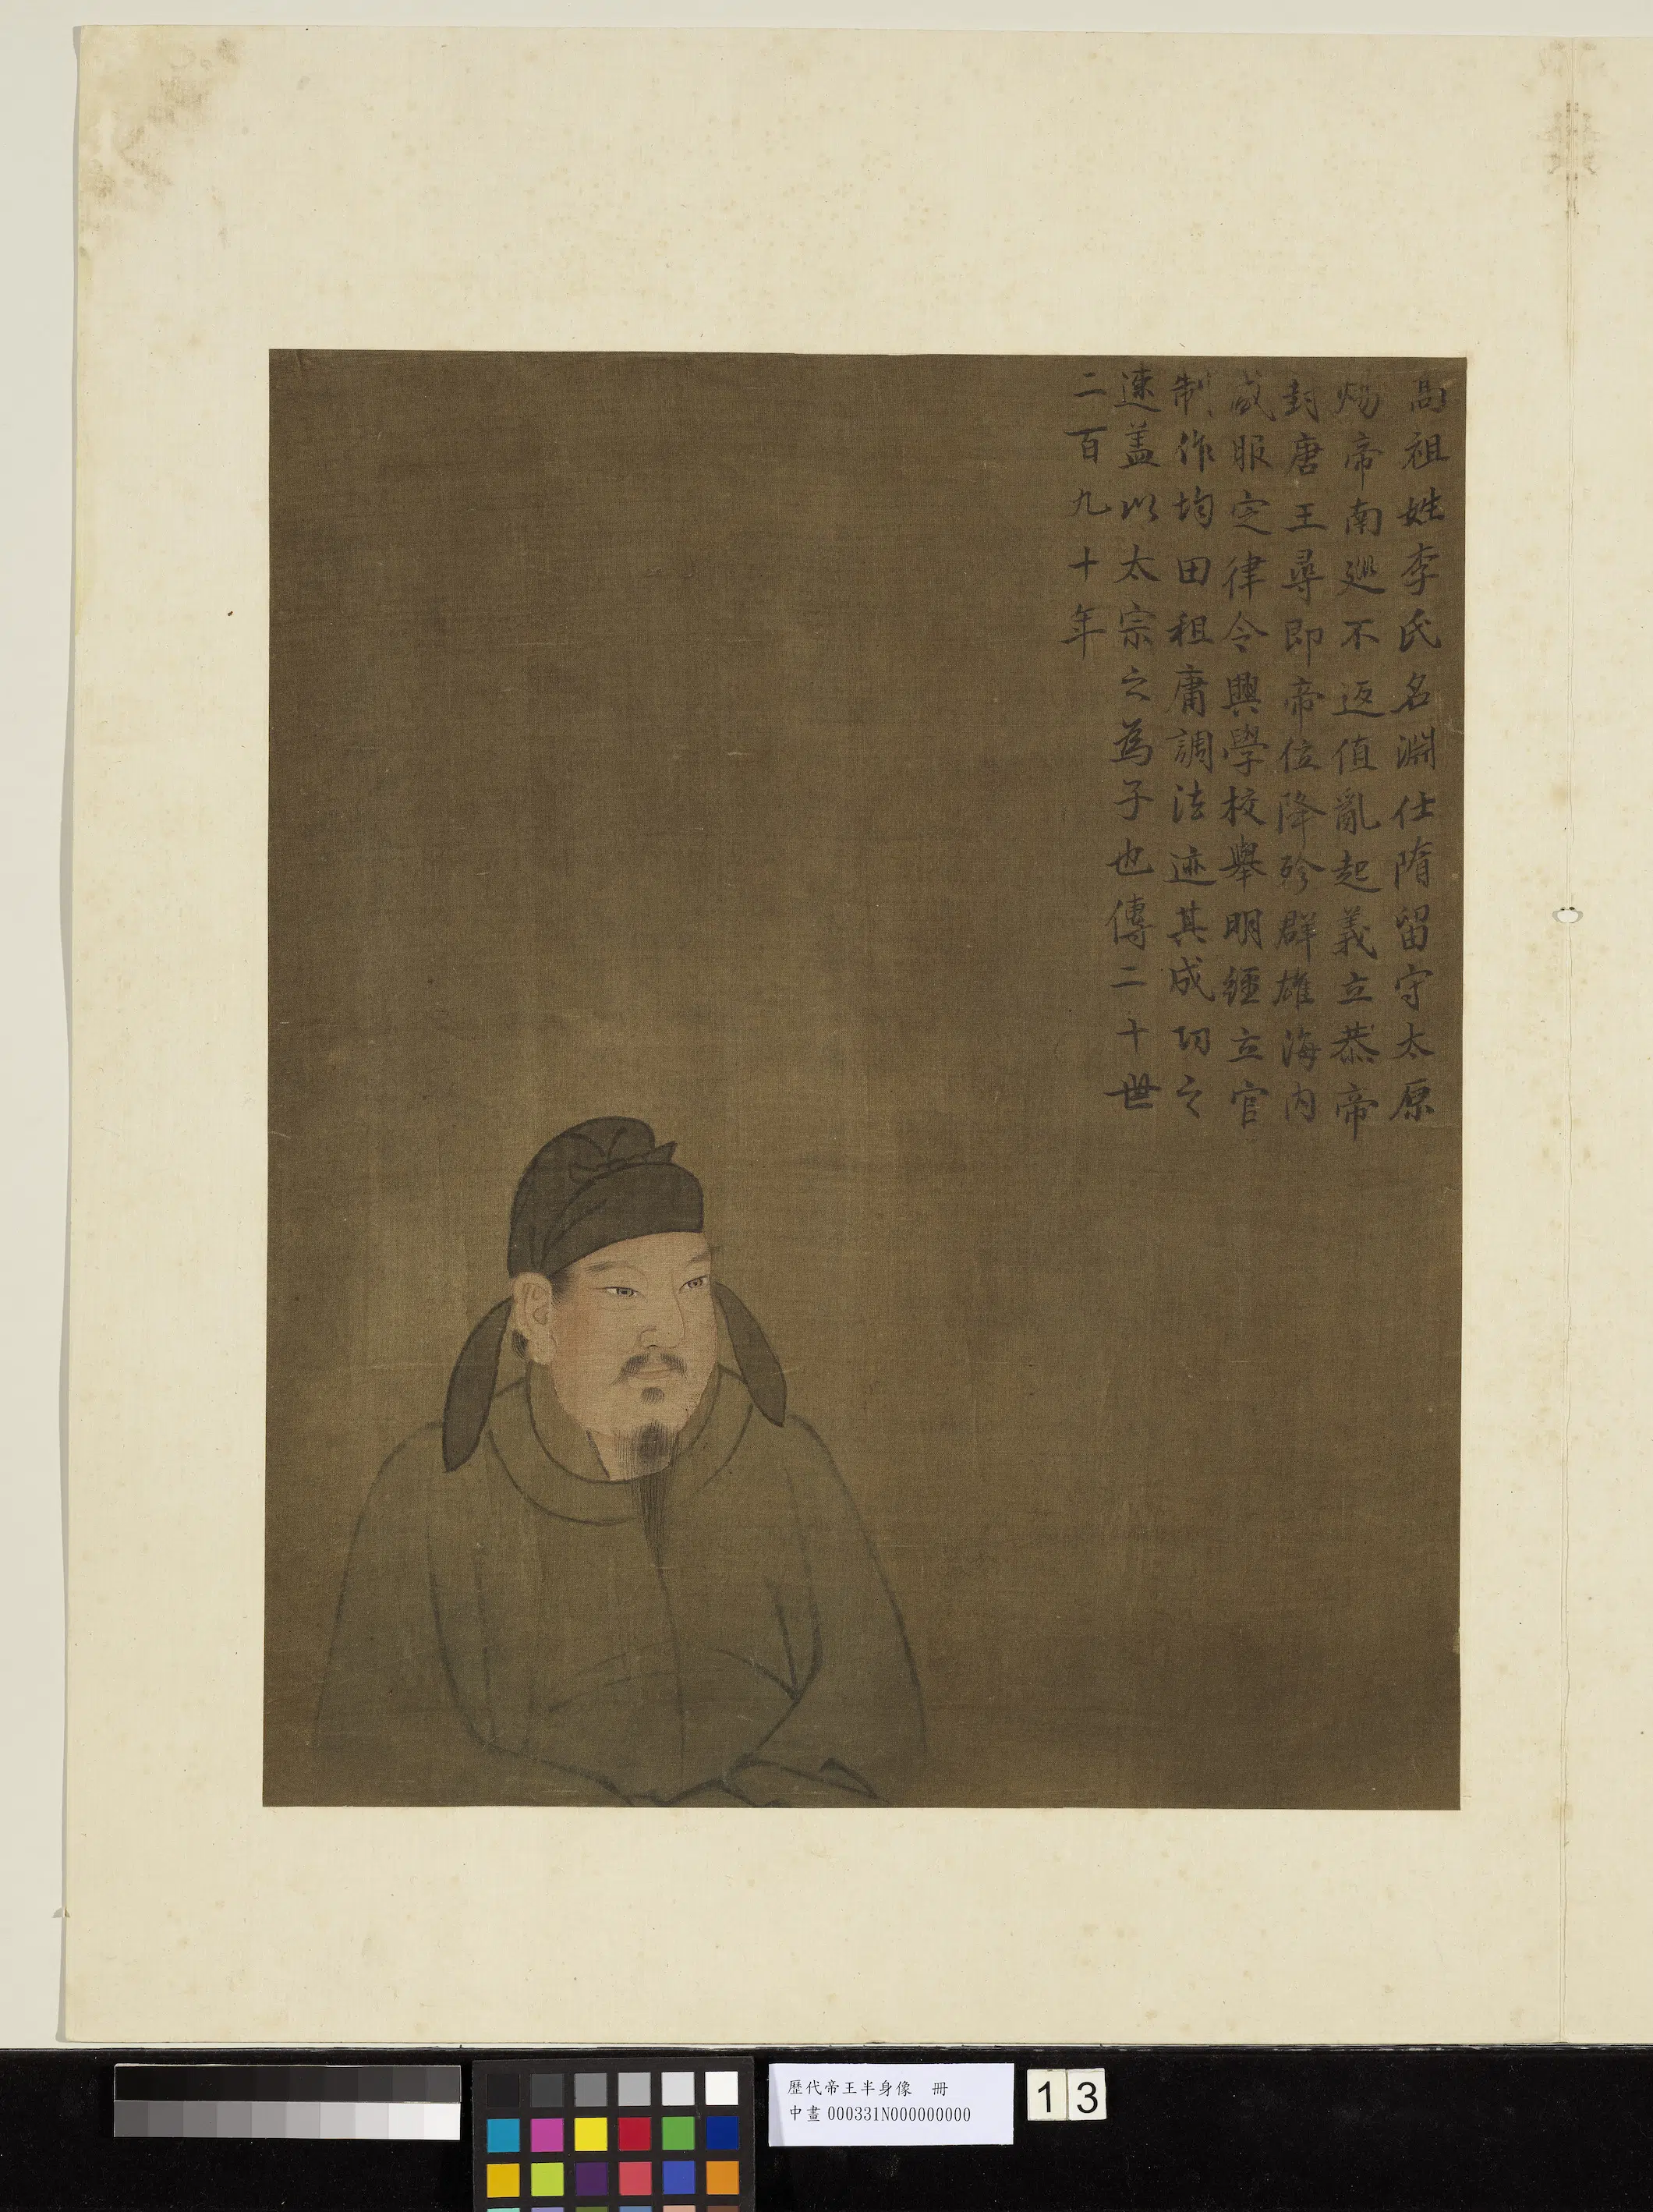 高祖姓李氏名淵仕隋留守太原
煬帝南廵不返值亂起義立恭帝
封唐王尋即帝位降殄群雄海内
咸服定律令興學校舉明經立官
制作均田租庸調法迹其成功之
速盖以太宗之為子也傳二十世
二百九十年
歷代帝王半身像 冊
中畫000331N000000000
13